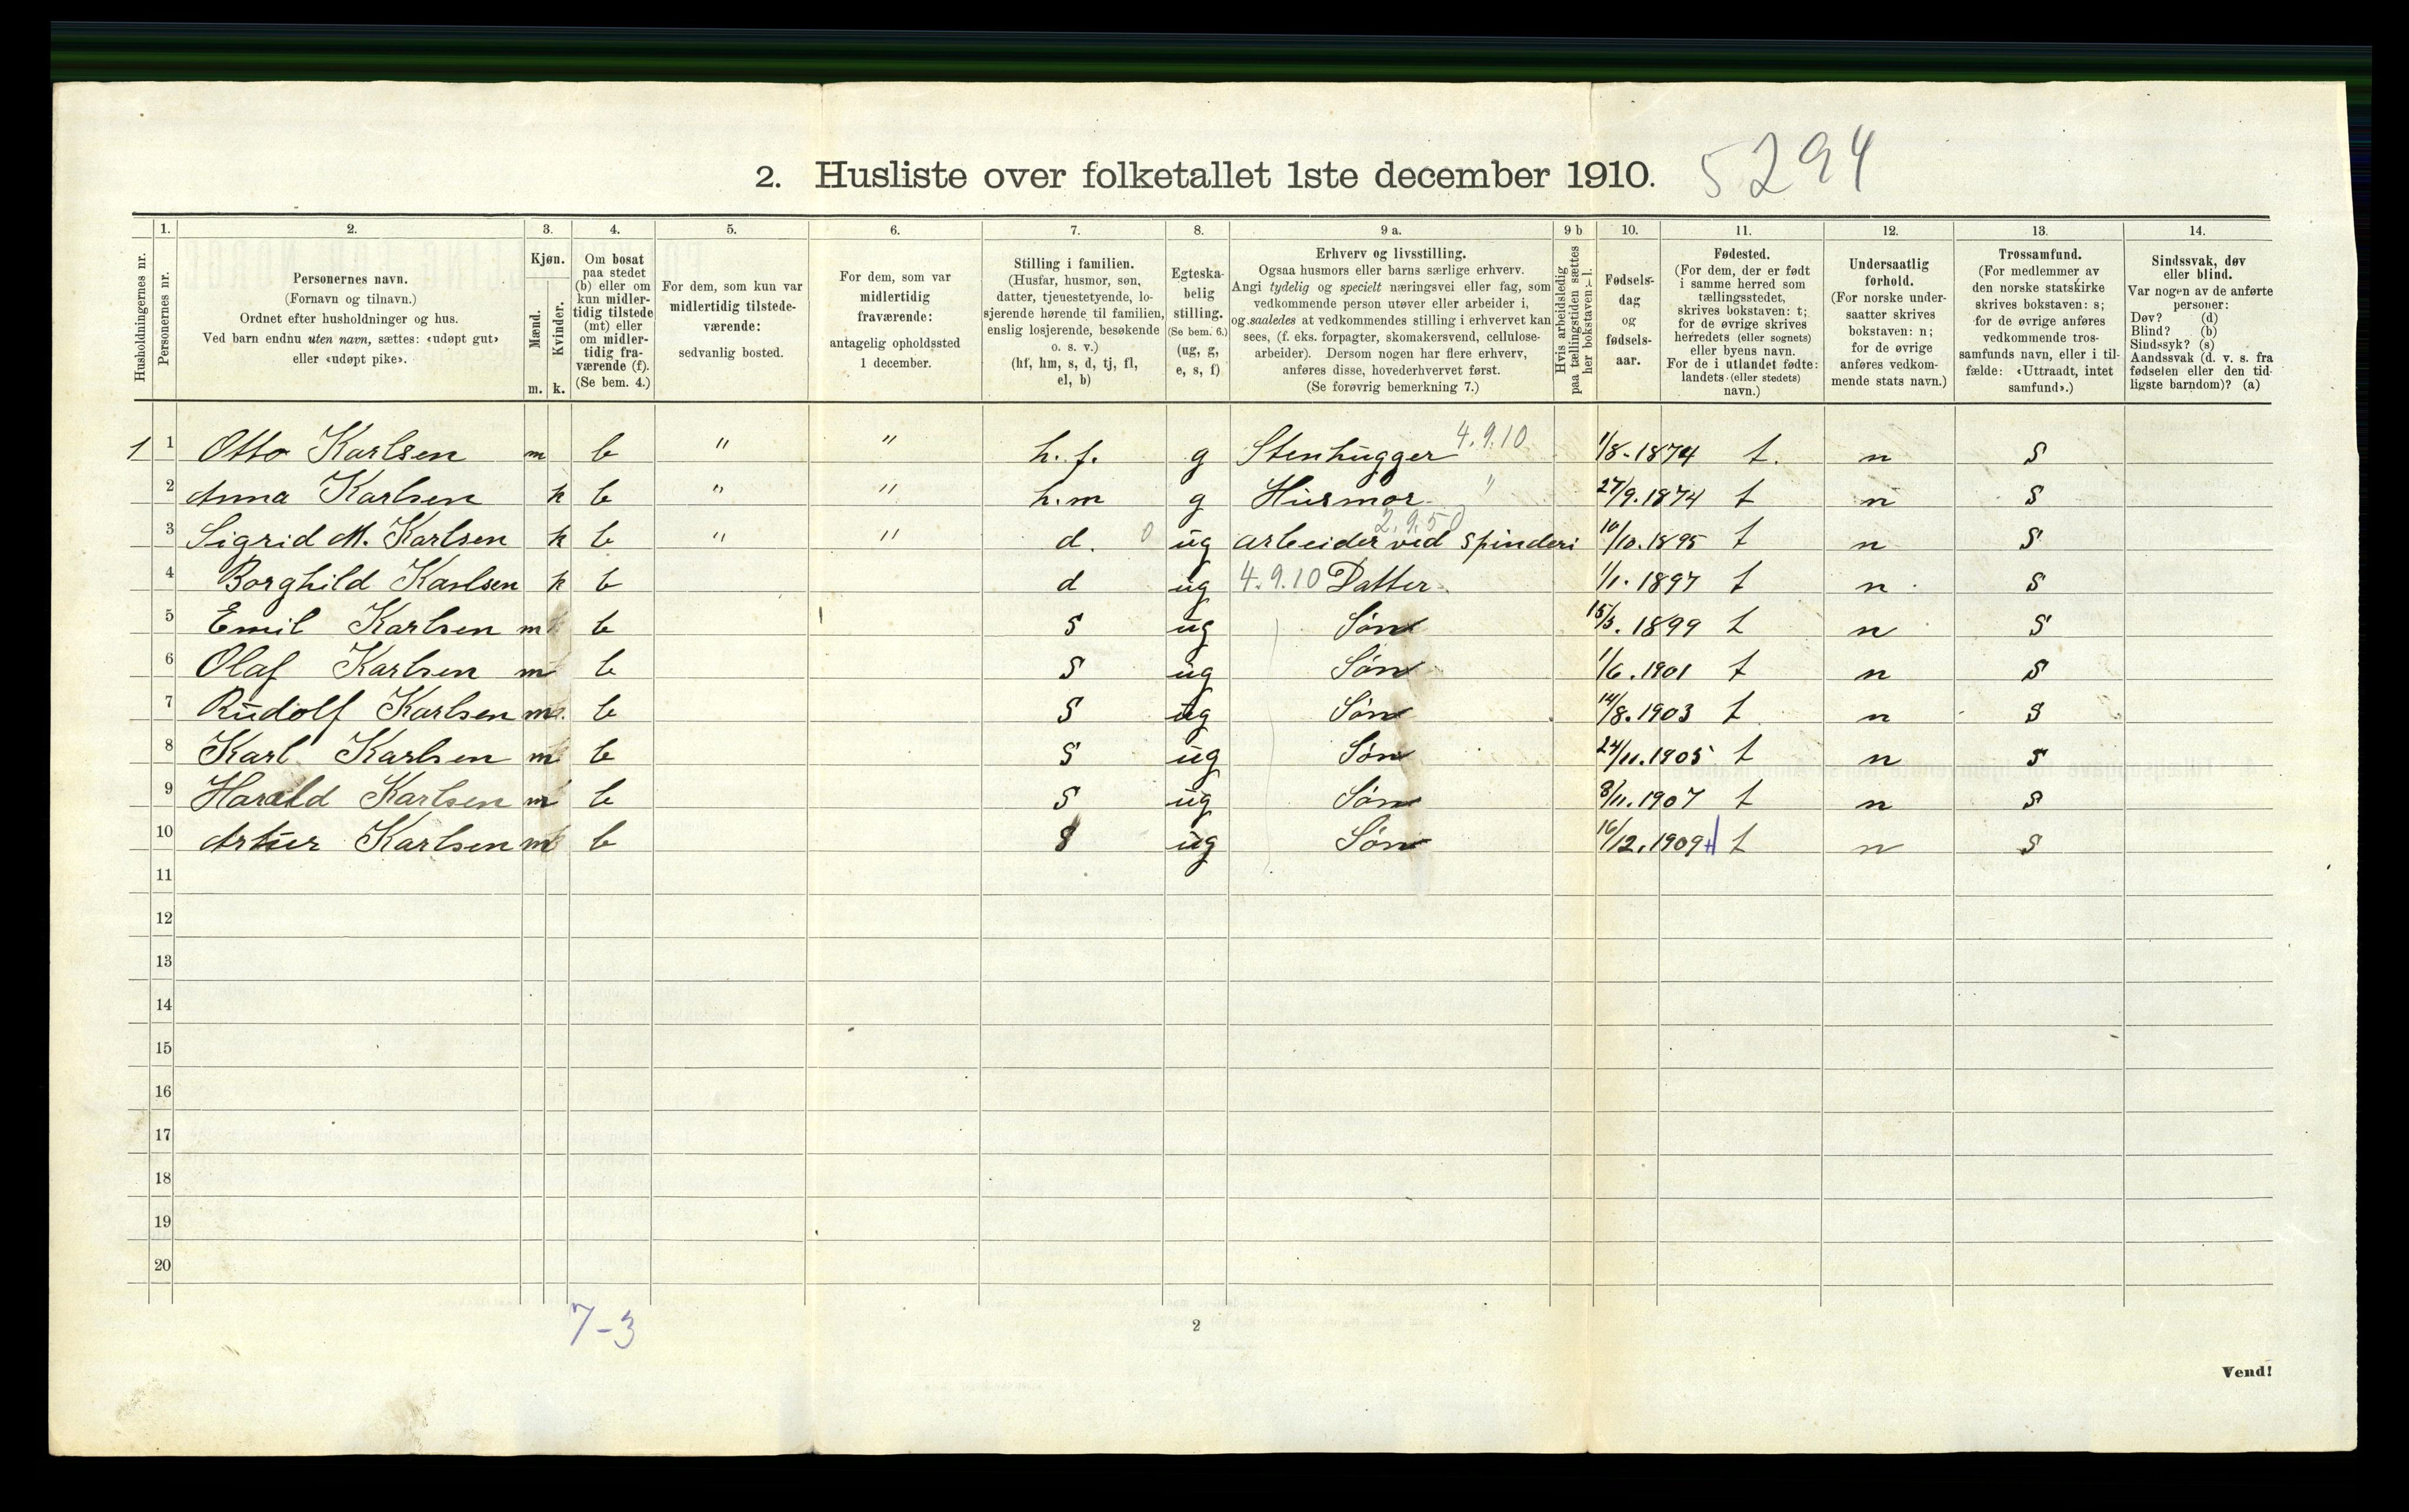 2. Husliste over folketallet 1ste december 1910. 5294
1. 2. 3. 4. 5. 6. 7. 8. 9 a. 9 b 10. 11. 12. 13. 14.
Husholdningernes nr.
Personernes nr.
Personernes navn.
(Fornavn og tilnavn.)
Ordnet efter husholdninger og hus.
Ved barn endnu uten navn, sættes: «udøpt gut»
eller «udøpt pike».
Kjøn.
Mænd.
Kvinder.
m. k.
Om bosat
paa stedet
(b) eller om
kun midler-
tidig tilstede
(mt) eller
om midler-
tidig fra-
værende (f).
(Se bem. 4.)
For dem, som kun var
midlertidig tilstede-
værende:
sedvanlig bosted.
For dem, som var
midlertidig
fraværende:
antagelig opholdssted
1 december.
Stilling i familien.
(Husfar, husmor, søn,
datter, tjenestetyende, lo-
sjerende hørende til familien,
enslig losjerende, besøkende
o. s. v.)
(hf, hm, s, d, tj, fl,
el, b)
Egteska-
belig
stilling.
(Se bem. 6.)
(ug, g,
e, s, f)
Erhverv og livsstilling.
Ogsaa husmors eller barns særlige erhverv.
Angi tydelig og specielt næringsvei eller fag, som
vedkommende person utøver eller arbeider i,
og saaledes at vedkommendes stilling i erhvervet kan
sees, (f. eks. forpagter, skomakersvend, cellulose-
arbeider). Dersom nogen har flere erhverv,
anføres disse, hovederhvervet først.
(Se forøvrig bemerkning 7.)
Hvis arbeidsledig
paa tællingstiden sættes
her bokstaven: l.
Fødsels-
dag
og
fødsels-
aar.
Fødested.
(For dem, der er født
i samme herred som
tællingsstedet,
skrives bokstaven: t;
for de øvrige skrives
herredets (eller sognets)
eller byens navn.
For de i utlandet fødte:
landets (eller stedets)
navn.)
Undersaatlig
forhold.
(For norske under-
saatter skrives
bokstaven: n;
for de øvrige
anføres vedkom-
mende stats navn.)
Trossamfund.
(For medlemmer av
den norske statskirke
skrives bokstaven: s;
for de øvrige anføres
vedkommende tros-
samfunds navn, eller i til-
fælde: «Uttraadt, intet
samfund».)
Sindssvak, døv
eller blind.
Var nogen av de anførte
personer:
Døv? (d)
Blind? (b)
Sindssyk? (s)
Aandssvak (d. v. s. fra
fødselen eller den tid-
ligste barndom)? (a)
1 1 Otto Karlsen m b " " h.f. g Stenhugger 4.9.10 1/8-1874 t. n s
2 Anna Karlsen k b " " h.m g Husmor " 27/9.1874 t n s
3 Sigrid M. Karlsen k b " " d. 0 ug arbeider ved spinderi 2.9.50 10/10.1895 t n s
4 Borghild Karlsen k b d ug 4.9.10 Datter 1/1.1897 t n s
5 Emil Karlsen m b s ug Søn 15/3.1899 t n s
6 Olaf Karlsen m b s ug Søn 1/6.1901 t n s
7 Rudolf Karlsen m b s ug Søn 14/8.1903 t n s
8 Karl Karlsen m b s ug Søn 24/11.1905 t n s
9 Harald Karlsen m b s ug Søn 8/11.1907 t n s
10 Artur Karlsen m b s ug Søn 16/12.1909 t n s
11
12
13
14
15
16
17
18
19
20
7-3
2
Vend!